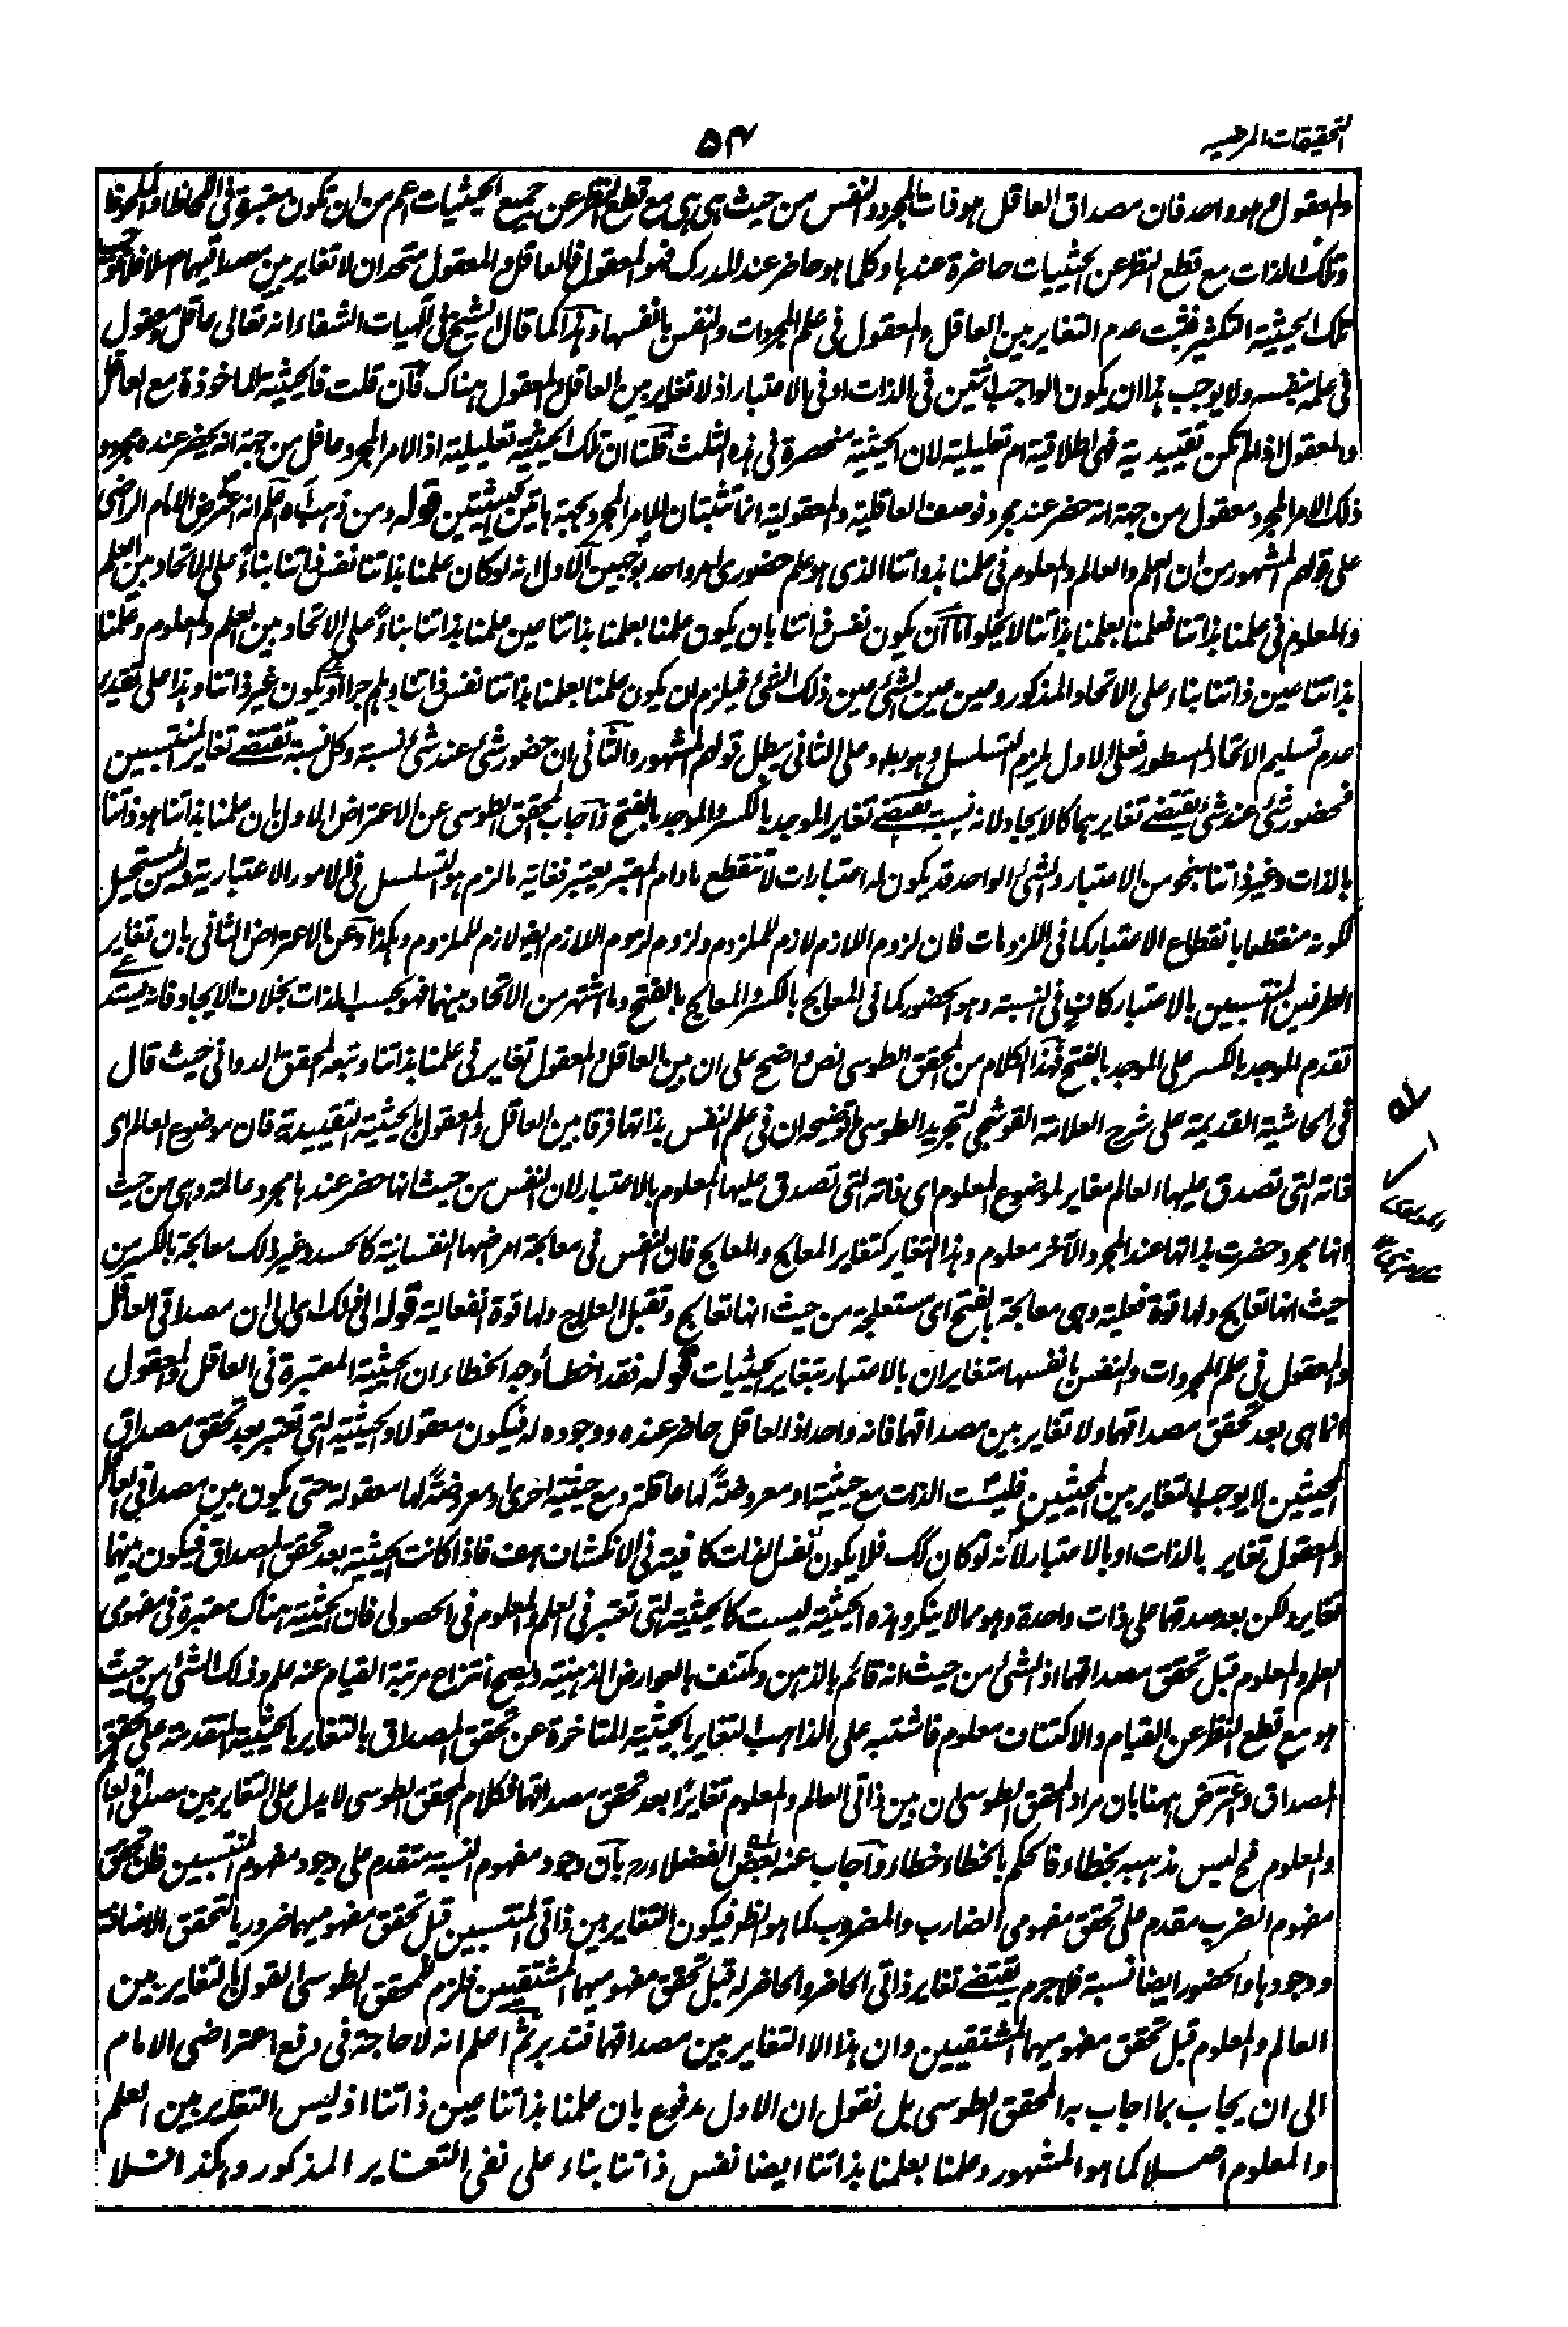 التحقيقات المرضيه
٥٤
والمعقول هو واحد فان مصداق العاقل هو ذات المجرد والنفس من حيث هى هى مع قطع النظر عن جميع الحيثيات اعم من ان تكون معتبرة فى
وتلك الذات مع قطع النظر عن الحيثيات حاضرة عندها وكلما هو حاضر عند المدرك فهو المعقول فالعاقل والمعقول متحدان لا تغاير بين مصداقيهما اصلا
تلك الحيثية التكثر فثبت عدم التغاير بين العاقل والمعقول فى علم المجردات والنفس بانفسها وهذا كما قال الشيخ فى آلهيات الشفاء انه تعالى عاقل ومعقول
فى علمه بنفسه ولا يوجب هذا ان يكون الواجب اثنين فى الذات او فى الاعتبار اذ لا تغاير بين العاقل والمعقول هناك فان قلت فالحيثية الماخوذة مع العاقل
والمعقول اذا لم تكن تقييدية فهى اطلاقية ام تعليلية لان الحيثية منحصرة فى هذه الثلث قلنا ان تلك الحيثية تعليلية اذ الامر المجرد عاقل من جهة انه يحضر عنده مجرد و
ذلك الامر المجرد معقول من جهة انه حضر عند مجرد فوصف العاقلية والمعقولية انما تثبتان للامر المجرد بجهة هاتين الحيثيتين قوله ومن ذهب آه اعلم انه اعترض الامام الرازى
على قولهم المشهور من ان العلم والعالم والمعلوم فى علمنا بذواتنا الذى هو علم حضورى امر واحد بوجهين الاول انه لو كان علمنا بذاتنا نفس ذاتنا بناءً على الاتحاد بين العلم
والمعلوم فى علمنا بذاتنا فعلمنا بعلمنا بذاتنا لا يخلو اما ان يكون نفس ذاتنا بان يكون علمنا بعلمنا بذاتنا عين علمنا بذاتنا بناءً على الاتحاد بين العلم والمعلوم وعلمنا
بذاتنا عين ذاتنا بناء على الاتحاد المذكور وعين عين الشئ عين ذلك الشئ فيلزم ان يكون علمنا بعلمنا بذاتنا نفس ذاتنا وهلم جرا او يكون غير ذاتنا وهذا على تقدير
عدم تسليم الاتحاد المسطور فعلى الاول يلزم التسلسل وهو بط وعلى الثانى يبطل قولهم المشهور والثانى ان حضور شئ عند شئ نسبة وكل نسبة تقتضے تغاير المنتسبين
فحضور شئ عند شئ يقتضے تغايرهما كالايجاد لانه نسبة يقتضے تغاير الموجد بالكسر والموجد بالفتح واجاب المحقق الطوسى عن الاعتراض الاول بان علمنا بذاتنا هو ذاتنا
بالذات وغير ذاتنا بنحو من الاعتبار والشئ الواحد قد يكون له اعتبارات لا تنقطع مادام المعتبر يعتبر فغاية ما لزم هو التسلسل فى الامور الاعتبارية وليس بمستحيل
لكونه منقطعا بانقطاع الاعتبار كما فى اللزومات فان لزوم اللازم لازم للملزوم ولزوم لزوم اللازم ايضا لازم للملزوم وهكذا وعن الاعتراض الثانى بان تغاير
الطرفين المنتسبين بالاعتبار كاف فى النسبة وهو الحضور كما فى المعالج بالكسر والمعالج بالفتح وما اشتهر من الاتحاد بينهما فهو بحسب الذات بخلاف الايجاد فانه يستدعے
تقدم الموجد بالكسر على الموجد بالفتح فهذا الكلام من المحقق الطوسى نص واضح على ان بين العاقل والمعقول تغاير فى علمنا بذاتنا وتبعه المحقق الدوانى حيث قال
فى الحاشية القديمة على شرح العلامة القوشجى لتجريد الطوسى توضيحه ان فى علم النفس بذاتها فرقا بين العاقل والمعقول بالحيثية التقييدية فان موضوع العالم اى
ذاته التى تصدق عليها العالم مغاير لموضوع المعلوم اى ذاته التى تصدق عليها المعلوم بالاعتبار لان النفس من حيث انها حضر عندها مجرد عالمة وهى من حيث
انها مجرد حضرت بذاتها عند المجرد والآخر معلوم وهذا التغاير كتغاير المعالج والمعالج فان النفس فى معالجة امراضها النفسانية كالحسد وغير ذلك معالجة بالكسر من
حيث انها تعالج ولها قوة فعلية وهى معالجة بالفتح اى مستعلجة من حيث انها تعالج وتقبل العلاج ولها قوة انفعالية قوله الى ذلك اى الى ان مصداقى العاقل
والمعقول فى علم المجردات والنفس بانفسها متغايران بالاعتبار بتغاير الحيثيات قوله فقد اخطأ وجه الخطاء ان الحيثية المعتبرة فى العاقل والمعقول
انما هى بعد تحقق مصداقهما ولا تغاير بين مصداقهما فانه واحد اذ العاقل حاضر عنده ووجوده له فيكون معقولا والحيثية التى تعتبر بعد تحقق مصداق
الحيثين لا يوجب التغاير بين المحيثين فليست الذات مع حيثية او معروضةً لها عاقلة ومع حيثية اخرى او معروضةً لها معقولة حتى يكون بين مصداقى العاقل
والمعقول تغاير بالذات او بالاعتبار لانه لو كان كك فلا يكون نفس الذات كافية فى الانكشاف هف فاذا كانت الحيثية بعد تحقق المصداق فيكون بينهما
تغاير ولكن بعد صدقهما على ذات واحدة وهو مما لا ينكر وهذه الحيثية ليست كالحيثية التى تعتبر فى العلم والمعلوم فى الحصولى فان الحيثية هناك معتبرة فى مفهومى
العلم والمعلوم قبل تحقق مصداقهما اذ الشئ من حيث انه قائم بالذهن ومكتنف بالعوارض الذهنية ويصح انتزاع مرتبة القيام عنه علم وذلك الشئ من حيث
هو مع قطع النظر عن القيام والاكتناف معلوم فاشتبه على الذاهب التغاير بالحيثية المتاخرة عن تحقق المصداق بالتغاير بالحيثية المتقدمة على تحقق
المصداق واعترض ههنا بان مراد المحقق الطوسى ان بين ذاتى العالم والمعلوم تغايرًا بعد تحقق مصداقهما فكلام المحقق الطوسى لا يدل على التغاير بين مصداقى العالم
والمعلوم فح ليس مذهبه بخطاء فالحكم بالخطاء خطاء واجاب عنه بعض الفضلاء بان وجود مفهوم النسبة متقدم على وجود مفهوم المنتسبين فان تحقق
مفهوم الضرب مقدم على تحقق مفهومى الضارب والمضروب كما هو الظ فيكون التغاير بين ذاتى المنتسبين قبل تحقق مفهوميهما ضروريا لتحقق الاضافة
ووجودها والحضور ايضا نسبة فلا جرم يقتضے تغاير ذاتى الحاضر والحاضر له قبل تحقق مفهوميهما المشتقين فلزم للمحقق الطوسى القول بالتغاير بين
العالم والمعلوم قبل تحقق مفهوميهما المشتقيين وان هذا الا التغاير بين مصداقهما فتدبر ثم اعلم انه لا حاجة فى دفع اعتراضى الامام
الى ان يجاب بما اجاب به المحقق الطوسى بل نقول ان الاول مدفوع بان علمنا بذاتنا عين ذاتنا اذ ليس التغاير بين العلم
والمعلوم اصلا كما هو المشهور وعلمنا بعلمنا بذاتنا ايضا نفس ذاتنا بناء على نفى التغاير المذكور وهكذا فلا